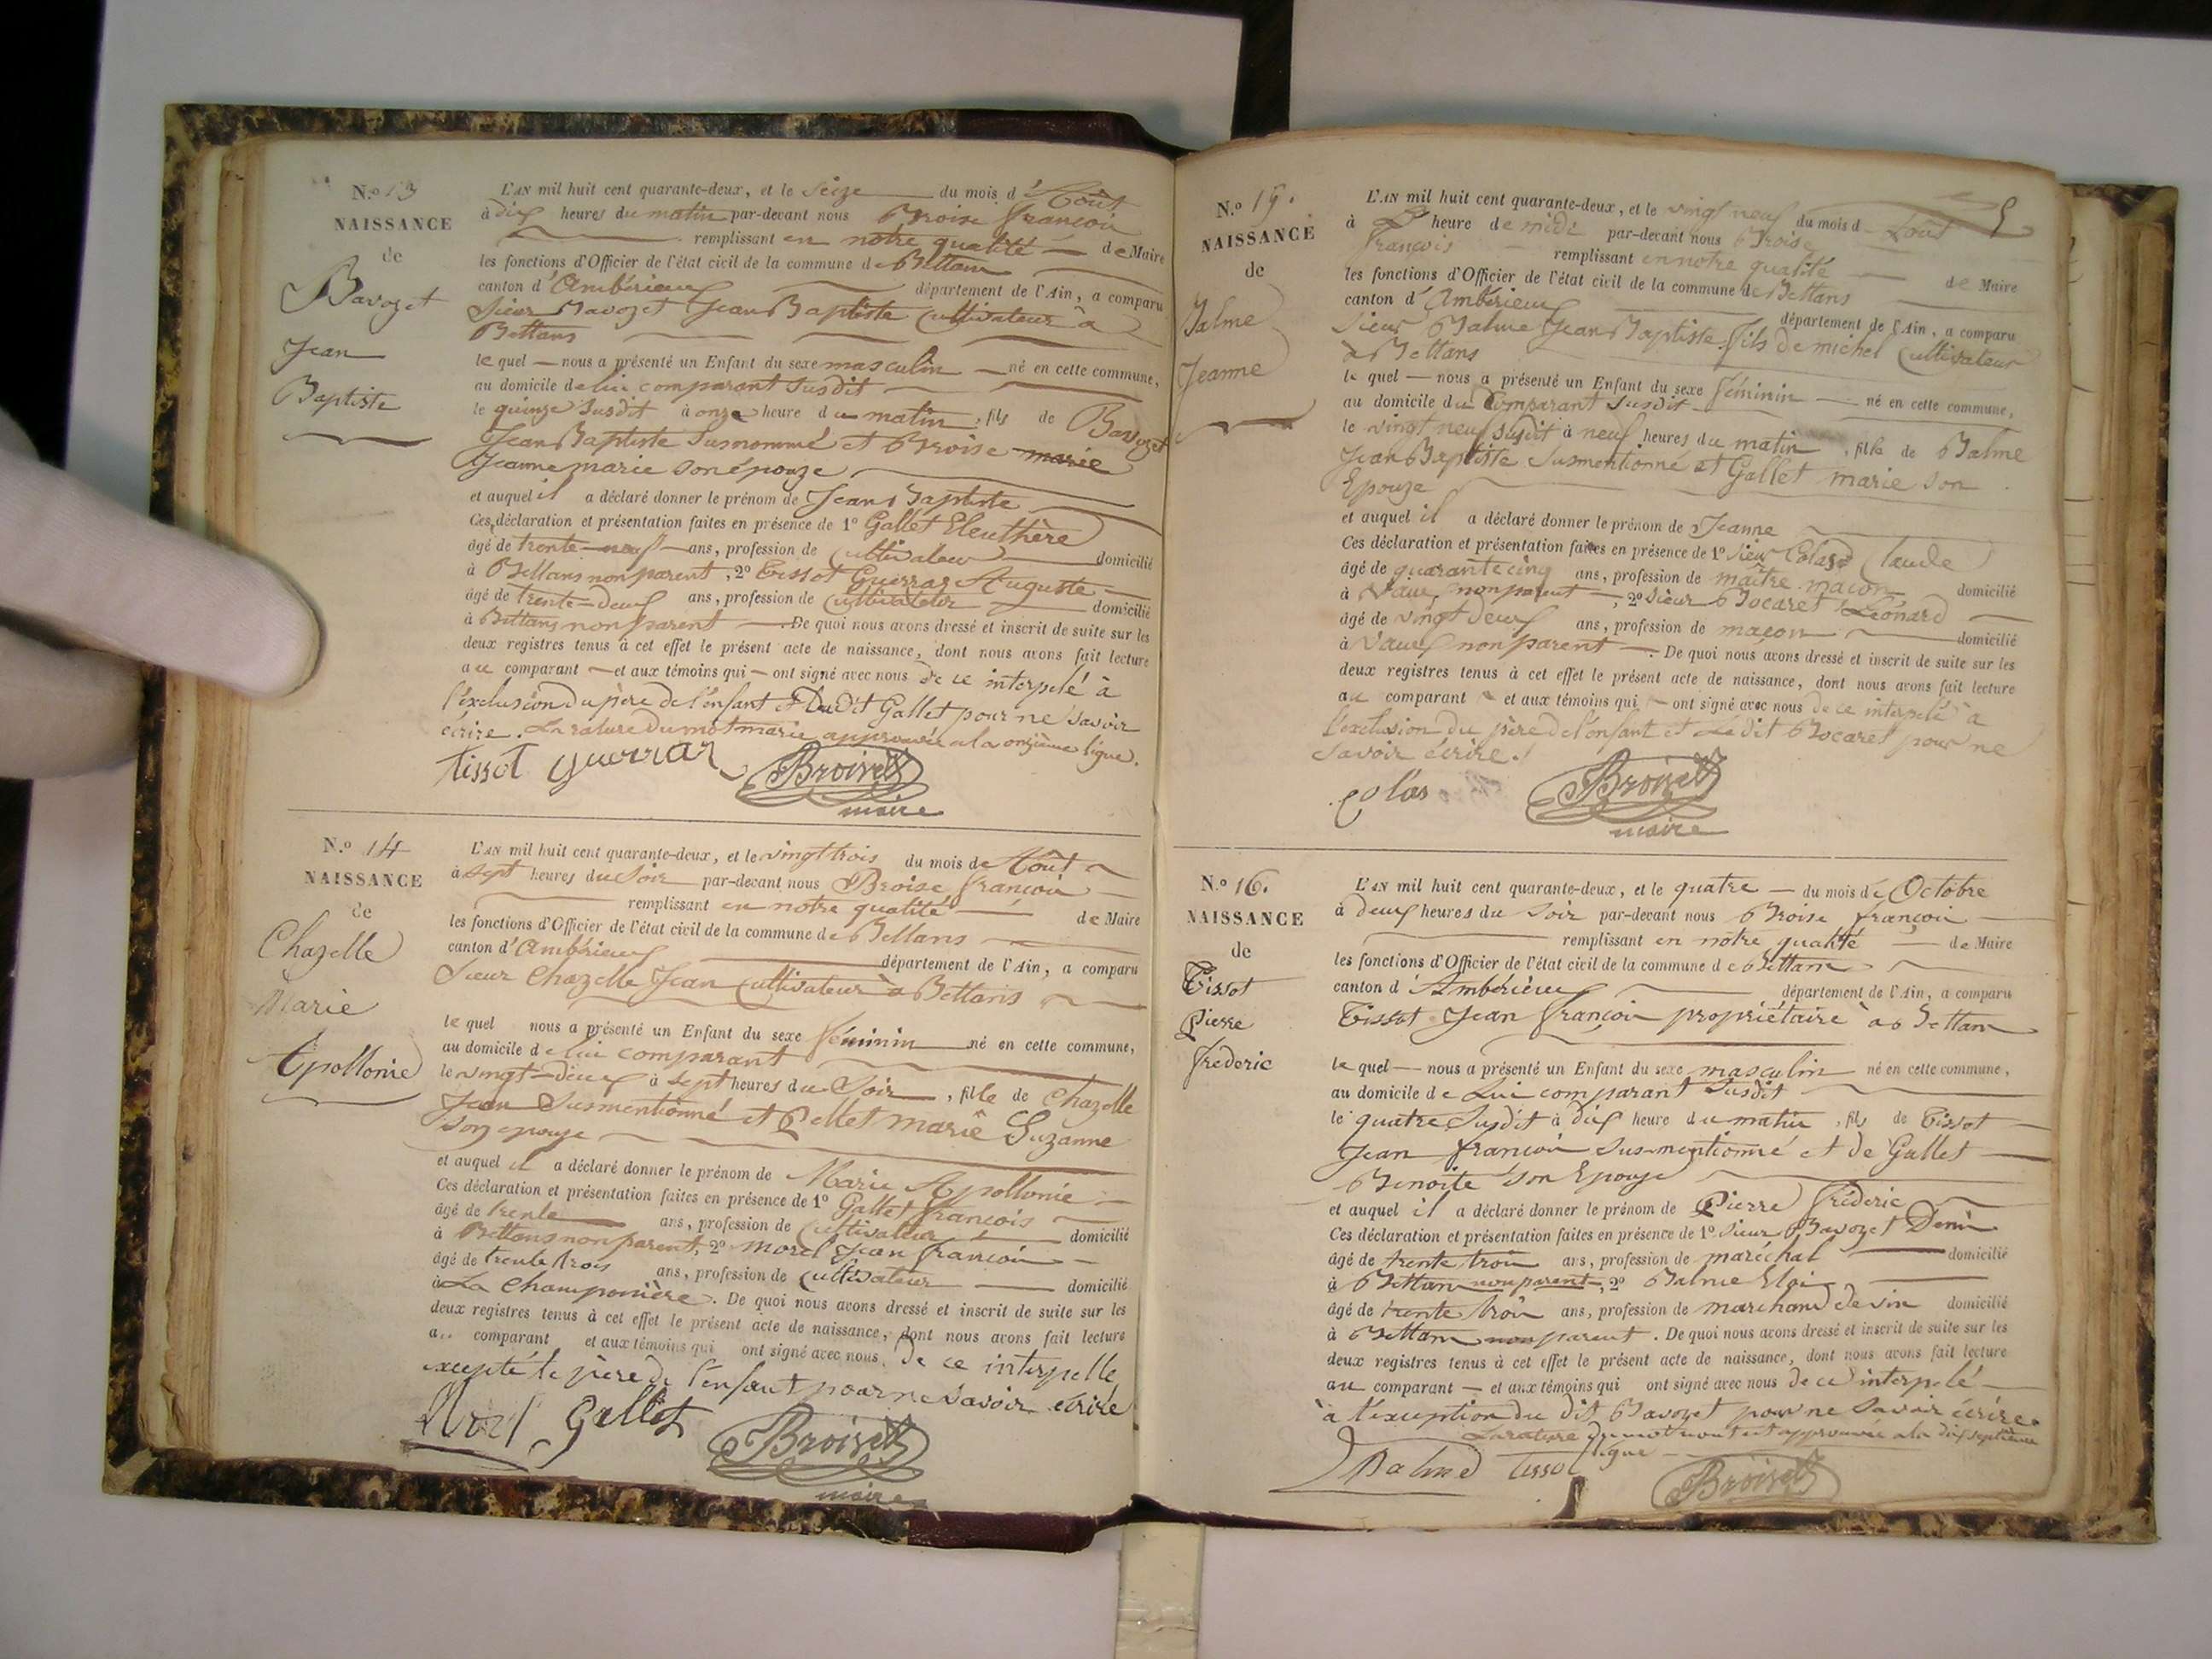 N.º 13
NAISSANCE
de
Bavozet
Jean
Baptiste
L'AN mil huit cent quarante-deux, et le Seize du mois d'Août
à dix heures du matin par-devant nous Broise françois
remplissant en notre qualité de Maire
les fonctions d'Officier de l'état civil de la commune de Bettans
canton d'Ambérieux département de l'Ain, a comparu
Sieur Bavozet Jean Baptiste Cultivateur à
Bettans
lequel nous a présenté un Enfant du sexe masculin né en cette commune,
au domicile de lui comparant susdit
le quinze susdit à onze heure du matin, fils de Bavozet
Jean Baptiste Susnommé et Broise marie
Jeanne marie son épouze
et auquel il a déclaré donner le prénom de Jean Baptiste
Ces déclaration et présentation faites en présence de 1º Gallet Eleuthère
âgé de trente-neuf ans, profession de Cultivateur domicilié
à Bettans non parent, 2º Tissot Guerraz Auguste
âgé de trente-deux ans, profession de Cultivateur domicilié
à Bettans non parent De quoi nous avons dressé et inscrit de suite sur les
deux registres tenus à cet effet le présent acte de naissance, dont nous avons fait lecture
au comparant et aux témoins qui ont signé avec nous de ce interpelé à
l'exclusion du père de l'enfant et Dudit Gallet pour ne savoir
écrire. La rature du mot marie approuvée a la onzième ligne.
tissot guerraz Broise
maire
N.º 14
NAISSANCE
de
Chazelle
Marie
Apollonie
L'AN mil huit cent quarante-deux, et le vingt trois du mois de Août
à Sept heures du Soir par-devant nous Broise françois
remplissant en notre qualité de Maire
les fonctions d'Officier de l'état civil de la commune de Bettans
canton d'Ambérieux département de l'Ain, a comparu
Sieur Chazelle Jean Cultivateur à Bettans
lequel nous a présenté un Enfant du sexe féminin né en cette commune,
au domicile de lui comparant
le vingt-deux à Sept heures du Soir, fille de Chazelle
Jean Susmentionné et Pellet marie Suzanne
son epouze
et auquel il a déclaré donner le prénom de Marie Apollonie
Ces déclaration et présentation faites en présence de 1º Gallet françois
âgé de trente ans, profession de Cultivateur domicilié
à Bettans non parent, 2º Morel Jean françois
âgé de trente trois ans, profession de Cultivateur domicilié
à La Championière. De quoi nous avons dressé et inscrit de suite sur les
deux registres tenus à cet effet le présent acte de naissance, dont nous avons fait lecture
au comparant et aux témoins qui ont signé avec nous De ce interpelle
excepté le père de l'enfant pour ne savoir écrire
Morel Gallet Broise
maire
N.º 15.
NAISSANCE
de
Balme
Jeanne
L'AN mil huit cent quarante-deux, et le vingt neuf du mois d Août
à heure de midi par-devant nous Broise
françois remplissant en notre qualité de Maire
les fonctions d'Officier de l'état civil de la commune de Bettans
canton d'Ambérieux département de l'Ain, a comparu
Sieur Balme Jean Baptiste fils de michel Cultivateur
à Bettans
lequel nous a présenté un Enfant du sexe féminin né en cette commune,
au domicile du Comparant Susdit
le vingt neuf susdit à neuf heures du matin, fille de Balme
Jean Baptiste Susmentionné et Gallet marie son
Epouze
et auquel il a déclaré donner le prénom de Jeanne
Ces déclaration et présentation faites en présence de 1º Sieur Colas Claude
âgé de quarante cinq ans, profession de maître maçon domicilié
à Vaux non parent, 2º Sieur Bocaret Léonard
âgé de vingt deux ans, profession de maçon domicilié
à Vaux non parent. De quoi nous avons dressé et inscrit de suite sur les
deux registres tenus à cet effet le présent acte de naissance, dont nous avons fait lecture
au comparant et aux témoins qui ont signé avec nous de ce interpelé à
l'exclusion du père de l'enfant et Ledit Bocaret pour ne
savoir écrire.
colas Broise
maire
N.º 16.
NAISSANCE
de
Tissot
Pierre
fréderic
L'AN mil huit cent quarante-deux, et le quatre du mois de Octobre
à deux heures du Soir par-devant nous Broise françois
remplissant en notre qualité de Maire
les fonctions d'Officier de l'état civil de la commune de Bettans
canton d'Ambérieux département de l'Ain, a comparu
Tissot Jean françois propriétaire à Bettans
lequel nous a présenté un Enfant du sexe masculin né en cette commune,
au domicile de Lui comparant Susdit
le quatre Susdit à dix heure du matin, fils de Tissot
Jean françois Susmentionné et de Gallet
Benoite son Epouze
et auquel il a déclaré donner le prénom de Pierre fréderic
Ces déclaration et présentation faites en présence de 1º Sieur Bavozet Denis
âgé de trente trois ans, profession de maréchal domicilié
à Bettans non parent, 2º Balme Eloi
âgé de trente trois ans, profession de marchand de vin domicilié
à Bettans non parent. De quoi nous avons dressé et inscrit de suite sur les
deux registres tenus à cet effet le présent acte de naissance, dont nous avons fait lecture
au comparant et aux témoins qui ont signé avec nous de ce interpelé
à l'exception du dit Bavozet pour ne savoir écrire.
La rature du mot non est approuvée a la dix septième
ligne
Balme Tissot Broise